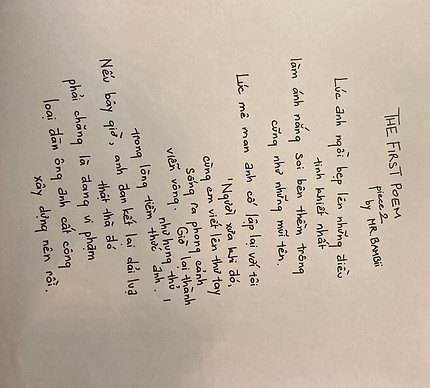 THE FIRST POEM
piece 2
by MR. BAMBii
Lúc anh ngồi bẹp lên những điều
tinh khiết nhất
làm ánh nắng soi bên thềm trông
cũng như những mũi tên.
Lúc mê man anh cố lặp lại với tôi
'Người xưa khi đó,
cùng em viết lên thư tay
Sóng ra phong cảnh
viễn vông. Giờ lại thành
như hưng thử,
trong lòng tiềm thức anh.
Nếu bây giờ, anh đan kết lại dải lụa
thật thà đó
phải chăng là đang vi phạm
loại đàn ông anh cất công
xây dựng nên rồi.